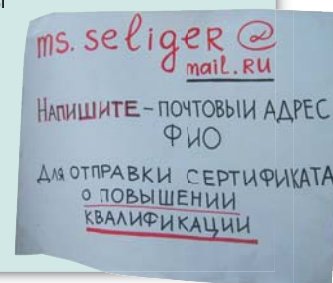 ms. seliger@
mail.RU
НАПИШИТЕ – ПОЧТОВЫЙ АДРЕС
ФИО
ДЛЯ ОТПРАВКИ СЕРТИФИКАТА
О ПОВЫШЕНИИ
КВАЛИФИКАЦИИ